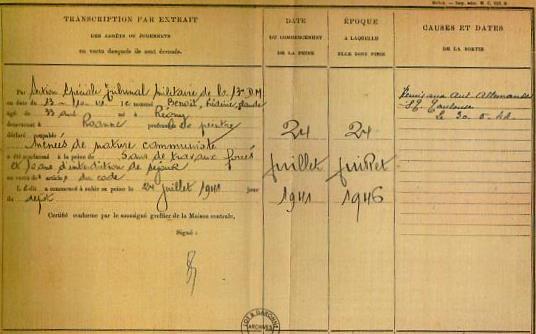 TRANSCRIPTION PAR EXTRAIT
DES ARRÊTS OU JUGEMENTS
en vertu desquels ils sont écroués.
DATE
DU COMMENCEMENT
DE LA PEINE
ÉPOQUE
A LAQUELLE
ELLE DOIT FINIR
CAUSES ET DATES
DE LA SORTIE
Par Section Spéciale Tribunal Militaire de la 13e D.M
en date du 13-10-41 le nommé Benoit, Frédéric, Claude
âgé de 33 ans né à
demeurant à Roanne profession de peintre
déclaré coupable
Menées de nature communiste
a été condamné à la peine de 5 ans de travaux forcés
et 10 ans d'interdiction de séjour
en vertu des articles du code
Ledit a commencé à subir sa peine le 24 juillet 1941 jour
du dépôt
Certifié conforme par le soussigné greffier de la Maison centrale,
Signé :
24
juillet
1941
24
juillet
1946
Remis aux Aut. Allemandes
Toulouse
le 30-5-44
LOT & GARONNE
ARCHIVES